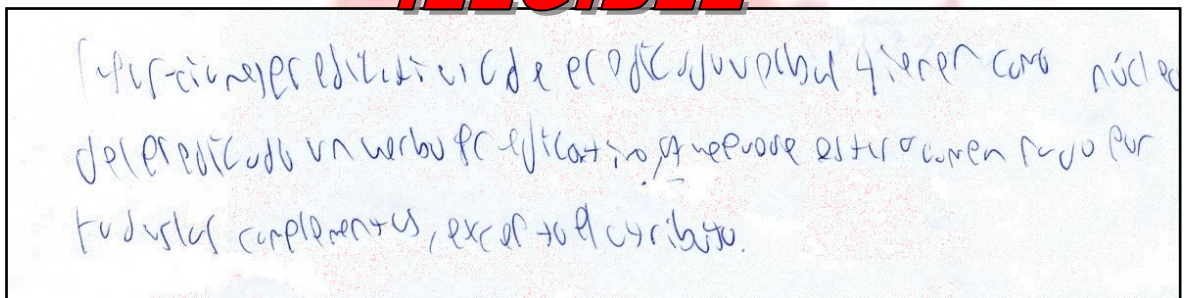 ILEGIBLE
oraciones predicativas de predicado verbal tienen como núcleo
del predicado un verbo predicativo, que puede estar por
todos los complementos, excepto el atributo.